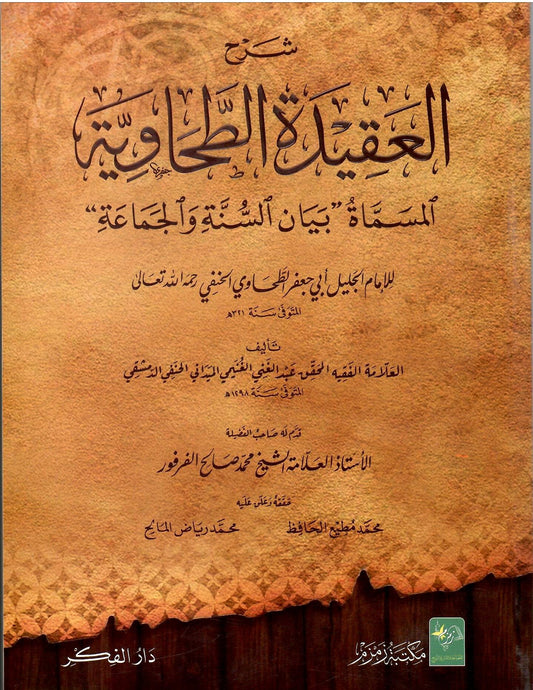 شرح
العقيدة الطحاوية
المسماة "بيان السنة والجماعة"
للإمام الجليل أبي جعفر الطحاوي الحنفي رحمه الله تعالى
المتوفى سنة ٣٢١هـ
تأليف
العلامة الفقيه المحقق عبد الغني الغنيمي الميداني الحنفي الدمشقي
المتوفى سنة ١٢٩٨هـ
قدم له صاحب الفضيلة
الأستاذ العلامة الشيخ محمد صالح الفرفور
حققه وعلق عليه
محمد مطيع الحافظ محمد رياض المالح
مكتبة زمزم
دار الفكر